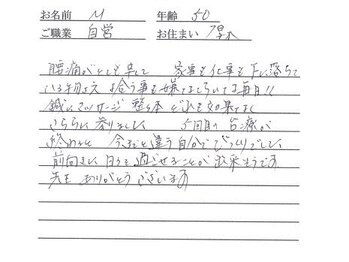 お名前 M 年齢 50
ご職業 自営 お住まい 厚木
腰痛がとても辛くて 家事も仕事も 下に落ちて
いる物さえ 拾う事も嫌になっている毎日!!
鍼 マッサージ 整体 どれも効果なく
こちらに参りました 5回目の治療が
終わると 今までと違う自分でびっくりでした
前向きに 日々を過ごせることが出来そうです
先生 ありがとうございます